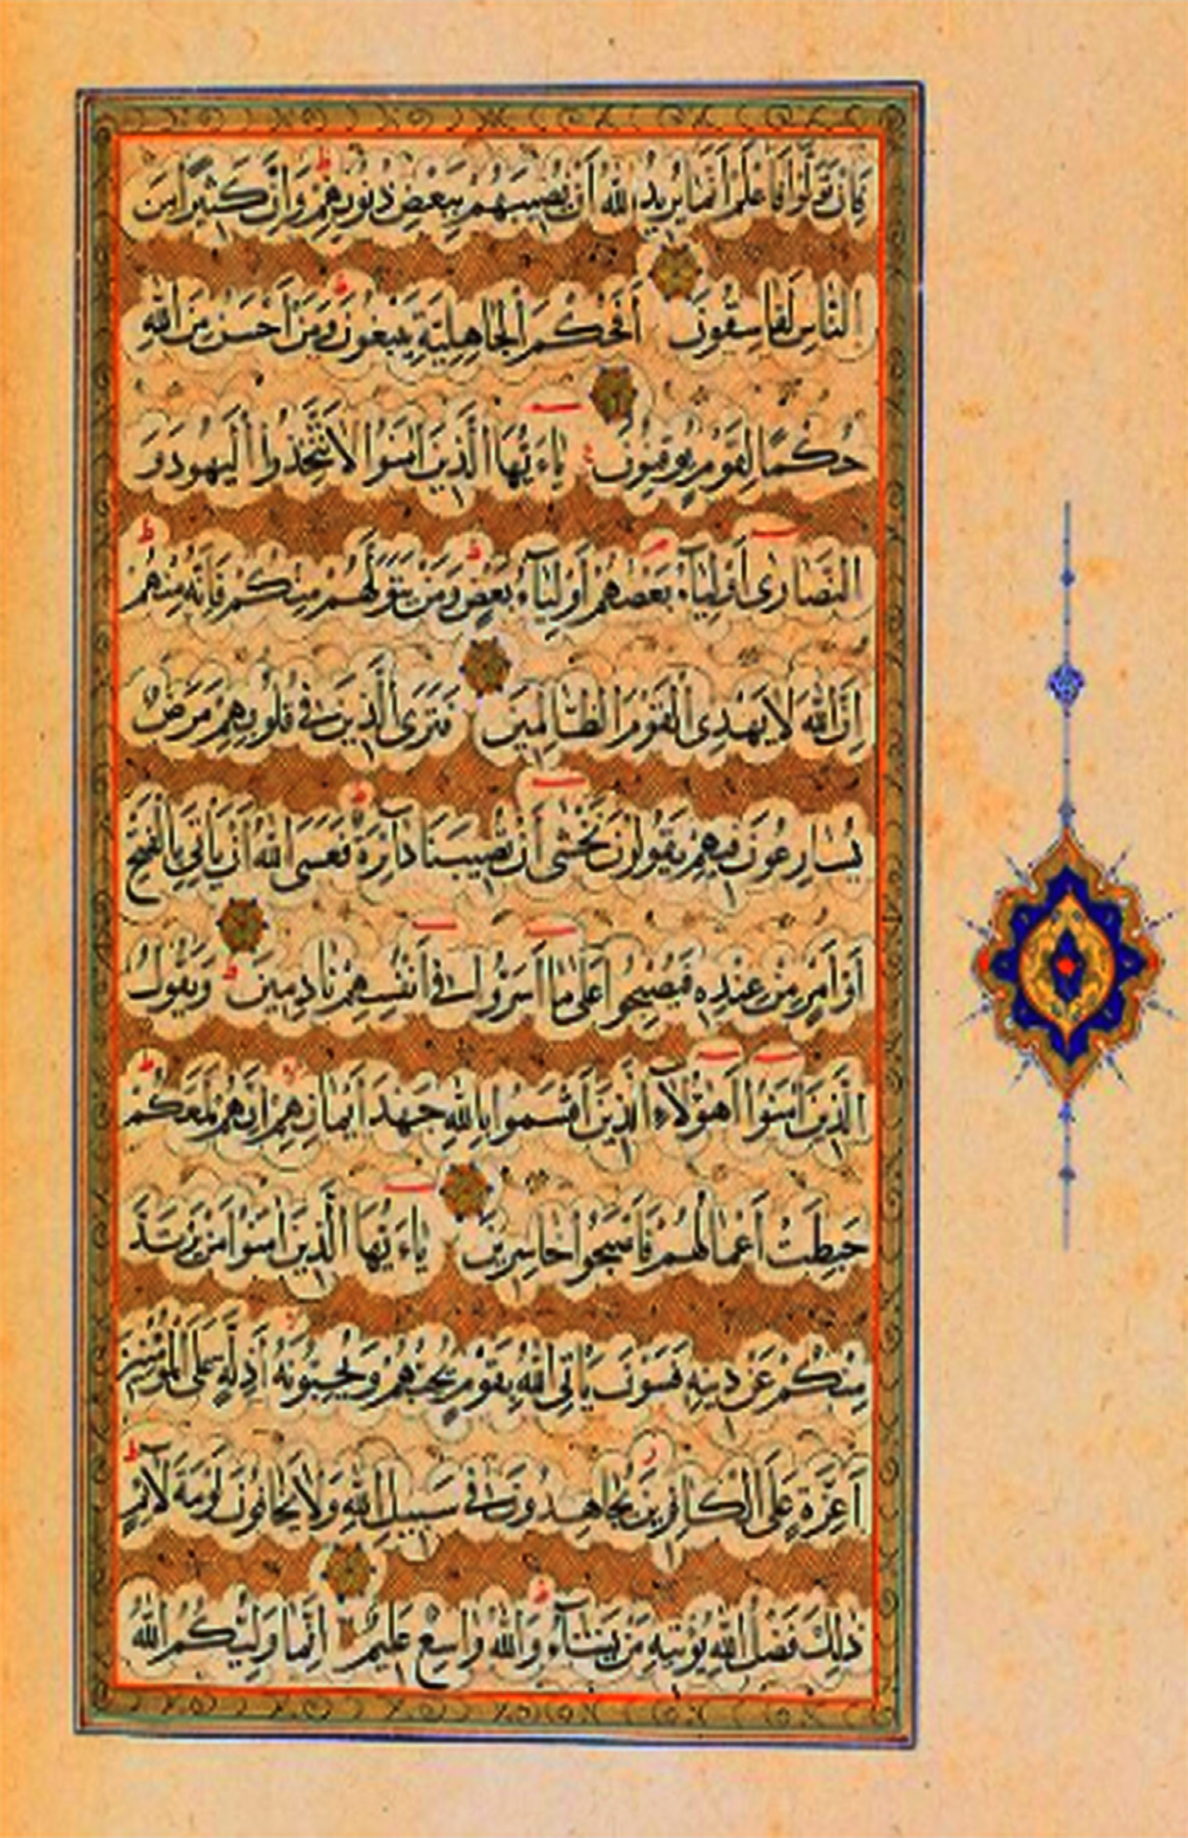 فَإِن تَوَلَّوْا فَاعْلَمْ أَنَّمَا يُرِيدُ اللَّهُ أَنْ يُصِيبَهُمْ بِبَعْضِ ذُنُوبِهِمْ وَإِنَّ كَثِيرًا مِنَ
النَّاسِ لَفَاسِقُونَ أَفَحُكْمَ الْجَاهِلِيَّةِ يَبْغُونَ وَمَنْ أَحْسَنُ مِنَ اللَّهِ
حُكْمًا لِقَوْمٍ يُوقِنُونَ يَاءَيُّهَا الَّذِينَ اٰمَنُوا لَا تَتَّخِذُوا الْيَهُودَ وَ
النَّصَارٰى أَوْلِيَآءَ بَعْضُهُمْ أَوْلِيَآءُ بَعْضٍ وَمَنْ يَتَوَلَّهُمْ مِنْكُمْ فَإِنَّهُ مِنْهُمْ
إِنَّ اللَّهَ لَا يَهْدِى الْقَوْمَ الظَّالِمِينَ فَتَرَى الَّذِينَ فِى قُلُوبِهِمْ مَرَضٌ
يُسَارِعُونَ فِيهِمْ يَقُولُونَ نَخْشٰى أَنْ تُصِيبَنَا دَآئِرَةٌ فَعَسَى اللَّهُ أَنْ يَأْتِىَ بِالْفَتْحِ
أَوْ أَمْرٍ مِنْ عِنْدِهِ فَيُصْبِحُوا عَلٰى مَا أَسَرُّوا فِى أَنْفُسِهِمْ نَادِمِينَ وَيَقُولُ
الَّذِينَ اٰمَنُوا أَهٰؤُلَآءِ الَّذِينَ أَقْسَمُوا بِاللَّهِ جَهْدَ أَيْمَانِهِمْ إِنَّهُمْ لَمَعَكُمْ
حَبِطَتْ أَعْمَالُهُمْ فَأَصْبَحُوا خَاسِرِينَ يَاءَيُّهَا الَّذِينَ اٰمَنُوا مَنْ يَرْتَدَّ
مِنْكُمْ عَنْ دِينِهِ فَسَوْفَ يَأْتِى اللَّهُ بِقَوْمٍ يُحِبُّهُمْ وَيُحِبُّونَهُ أَذِلَّةٍ عَلَى الْمُؤْمِنِينَ
أَعِزَّةٍ عَلَى الْكَافِرِينَ يُجَاهِدُونَ فِى سَبِيلِ اللَّهِ وَلَا يَخَافُونَ لَوْمَةَ لَآئِمٍ
ذٰلِكَ فَضْلُ اللَّهِ يُؤْتِيهِ مَنْ يَشَآءُ وَاللَّهُ وَاسِعٌ عَلِيمٌ إِنَّمَا وَلِيُّكُمُ اللَّهُ